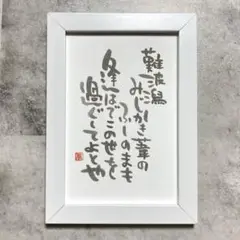 難波潟
みじかき葦の
ふしのまも
逢はでこの世を
過ぐしてよとや